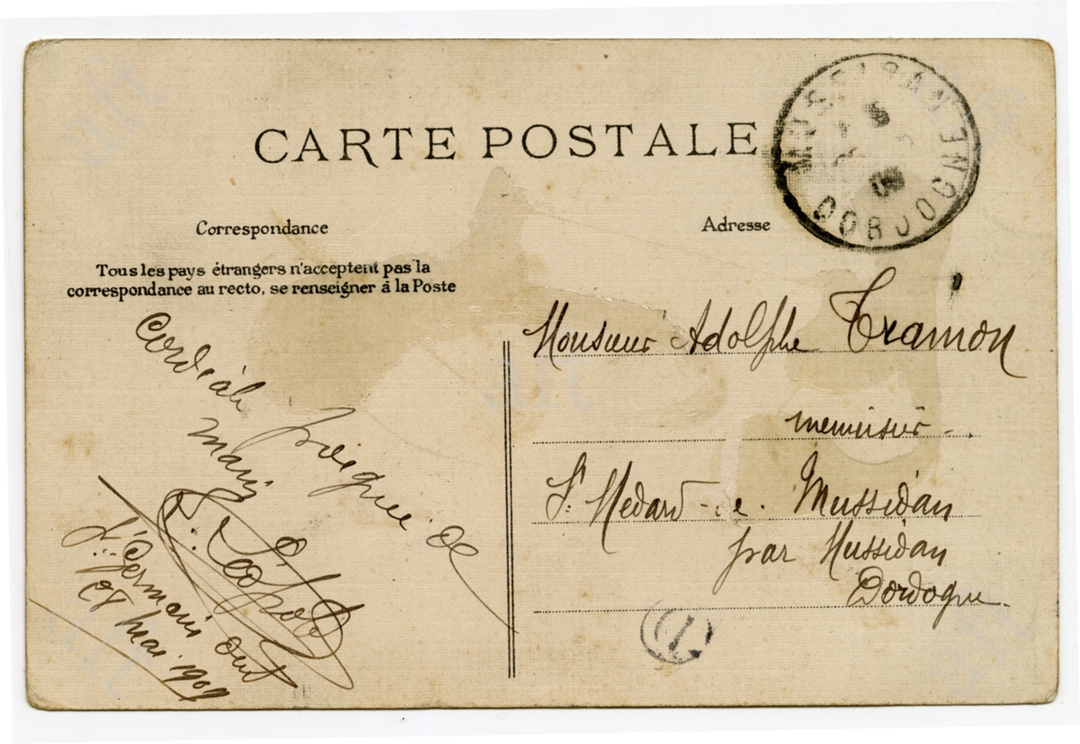 CARTE POSTALE
MUSSIDAN
DORDOGNE
09
Correspondance
Adresse
Tous les pays étrangers n'acceptent pas la
correspondance au recto, se renseigner à la Poste
Cordiale poignée de
main
L. Léopold
St Germain
mai 190
Monsieur Adolphe Tramon
menuisier.
St. Medard-de. Mussidan
par Mussidan
Dordogne.